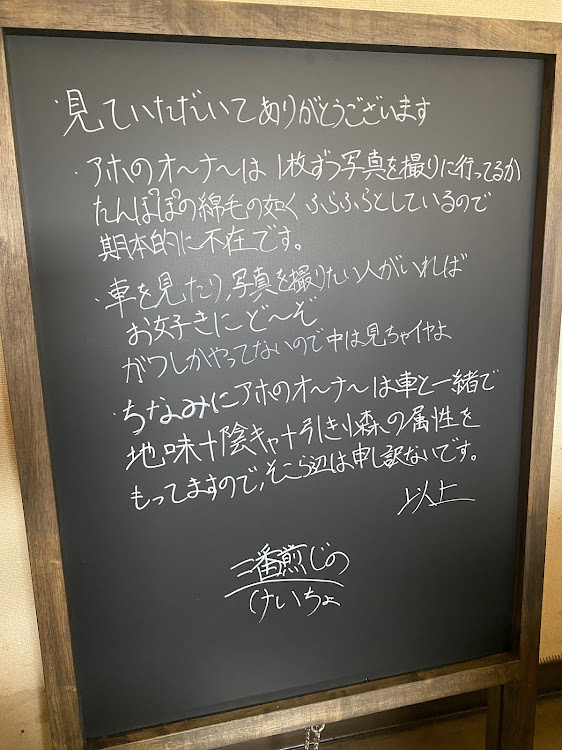 ・見ていただいてありがとうございます
・アホのオ〜ナ〜は1枚ずつ写真を撮りに行ってるか
たんぽぽの綿毛の如くふらふらとしているので
期本的に不在です。
・車を見たり、写真を撮りたい人がいれば
お好きにど〜ぞ
ガワしかやってないので中は見ちゃイヤよ
・ちなみにアホのオ〜ナ〜は車と一緒で
地味+陰キャ+引きこ森の属性を
もってますので、そこら辺は申し訳ないです。
以上
二番煎じの
けいちょ